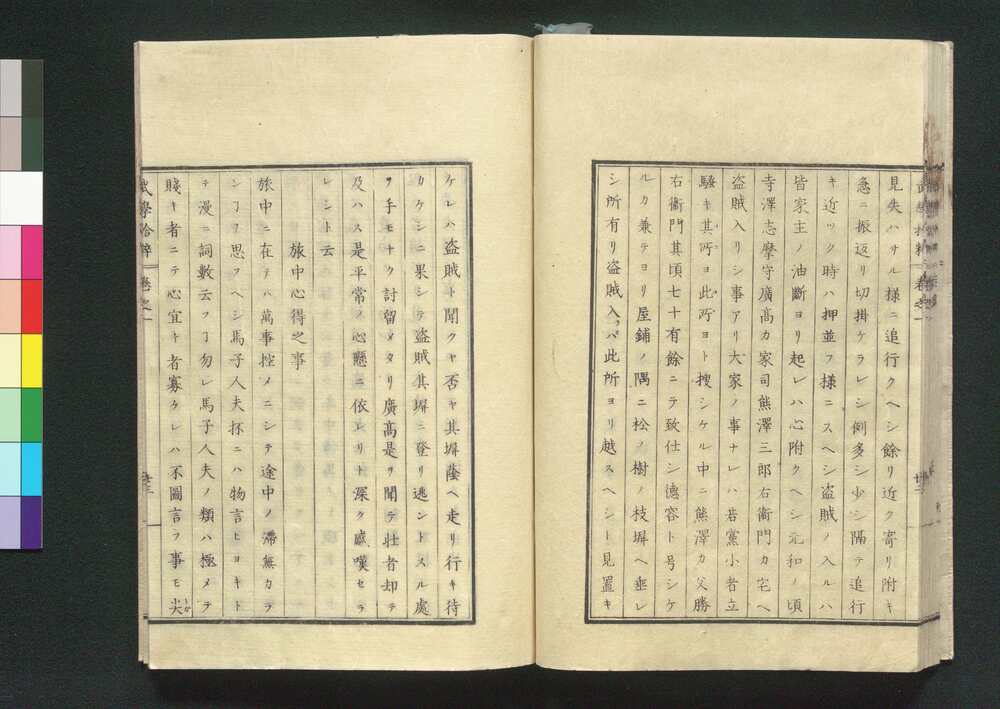 見失ハサル様ニ追行クヘシ餘リ近ク寄リ附キ
急ニ振返リ切掛ケラレシ例多シ少シ隔テ追行
キ近ツク時ハ押並フ様ニスヘシ盗賊ノ入ルハ
皆家主ノ油斷ヨリ起レハ心附クヘシ元和ノ頃
寺澤志摩守廣高カ家司熊澤三郎右衞門カ宅ヘ
盗賊入リシ事アリ大家ノ事ナレハ若黨小者立
騒キ其所ヨ此所ヨト捜シケル中ニ熊澤カ父勝
右衞門其頃七十有餘ニテ致仕シ德容ト号シケ
ルカ兼テヨリ屋鋪ノ隅ニ松ノ樹ノ枝塀ヘ垂レ
シ所有リ盗賊入ラバ此所ヨリ越スヘシト見置キ
ケレハ盗賊ト聞クヤ否ヤ其塀蔭ヘ走リ行キ待
カケシニ果シテ盗賊其塀ニ登リ逃シトスル處
ヲ手モナク討留メタリ廣高是ヲ聞テ壮者却テ
及ハス是平常ノ心懸ニ依レリト深ク感嘆セラ
レシト云
旅中心得之事
旅中ニ在テハ萬事控メニシテ途中ノ滞無カラ
ン丁ヲ思フヘシ馬子人夫抔ニハ物言ヒヨキト
テ漫ニ詞數云フ丁勿レ馬子人夫ノ類ハ極メテ
賤キ者ニテ心宜キ者寡ケレハ不圖言フ事モ尖
武學拾粹 卷之一